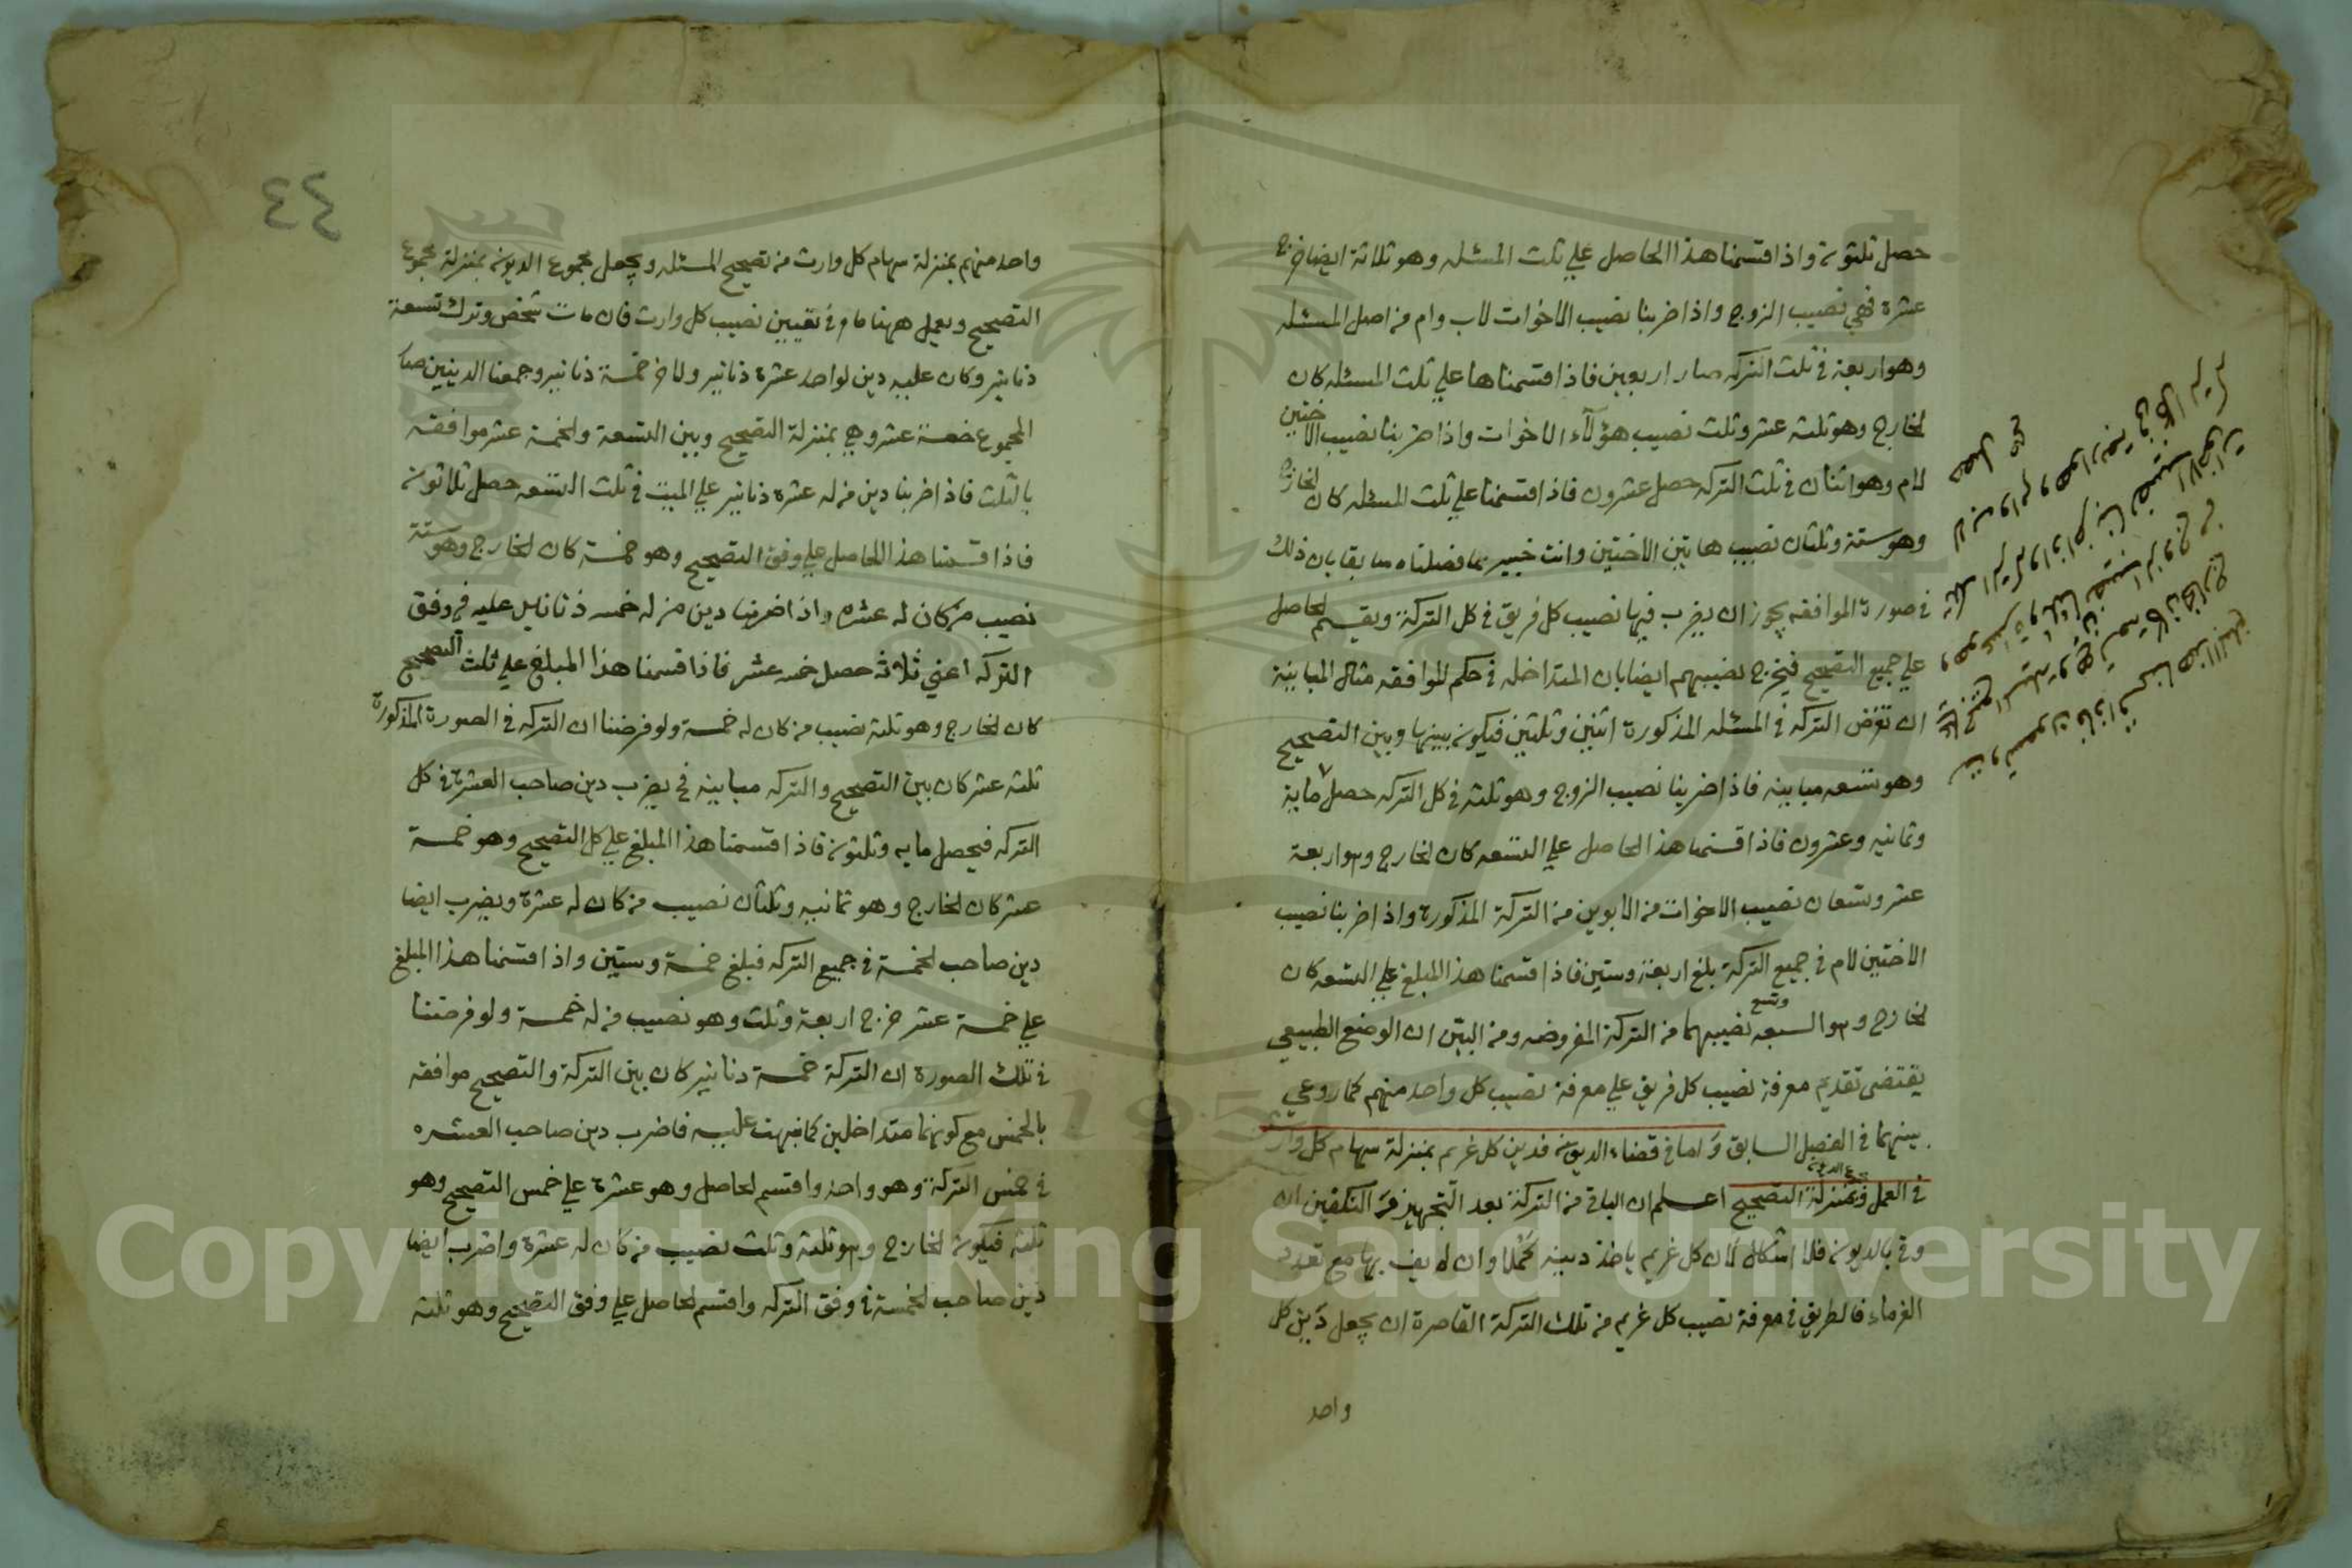 حصل ثلثون واذا قسمنا هذا الحاصل علي ثلث المسئله وهو ثلاثة ايضا خرج
عشرة فهي نصيب الزوج واذا ضربنا نصيب الاخوات لاب وام من اصل المسئله
وهو اربعة في ثلث التركه صار اربعين فاذا قسمناها علي ثلث المسئله كان
الخارج وهو ثلثه عشر وثلث نصيب هؤلآء الاخوات واذا ضربنا نصيب الاختين
لام وهو اثنان في ثلث التركه حصل عشرون فاذا قسمنا علي ثلث المسئله كان الخارج
وهو ستة وثلثان نصيب هاتين الاختين وانت خبير بما فصلناه سابقا بان ذلك
في صورة الموافقه يجوز ان يضرب فيها نصيب كل فريق في كل التركة ويقسم الحاصل
علي جميع التصحيح فيخرج نصيبهم ايضا بان المتداخله في حكم الموافقه مثال المباينة
ان تفرض التركه في المسئله المذكورة اثنين وثلثين فيكون بينها وبين التصحيح
وهو تسعه مباينه فاذا ضربنا نصيب الزوج وهو ثلثه في كل التركه حصل ماية
وثمانيه وعشرون فاذا قسمنا هذا الحاصل علي التسعه كان الخارج وهو اربعة
عشر وتسعان نصيب الاخوات من الابوين من التركة المذكورة واذا ضربنا نصيب
الاختين لام في جميع التركة بلغ اربعة وستين فاذا قسمنا هذا المبلغ علي التسعه كان
الخارج وهو السبعه وتسع نصيبهما من التركة المفروضه ومن البيّن ان الوضع الطبيعي
يقتضي تقديم معرفة نصيب كل فريق علي معرفة نصيب كل واحد منهم كما روعي
بينهما في الفصل السابق واما في قضاء الديون فدين كل غريم بمنزلة سهام كل وارث
في العمل وبمنزلة التصحيح اعلم ان الباقي من التركة بعد التجهيز والتكفين ان
وفي بالديون فلا اشكال لان كل غريم ياخذ دينه كملا وان لم يف بها مع تعدد
الغرماء فالطريق في معرفة نصيب كل غريم من تلك التركة القاصرة ان يجعل دين كل
واحد
٤٤
واحد منهم بمنزلة سهام كل وارث من تصحيح المسئله ويجعل مجموع الديون بمنزلة مجموع
التصحيح ويعمل ههنا ما مر في تعيين نصيب كل وارث فان مات شخص وترك تسعة
دنانير وكان عليه دين لواحد عشرة دنانير ولاخر خمسة دنانير وجمعنا الدينين صار
المجموع خمسة عشر وهي بمنزلة التصحيح وبين التسعة والخمسة عشر موافقه
بالثلث فاذا ضربنا دين من له عشرة دنانير علي الميت في ثلث التسعه حصل ثلاثون
فاذا قسمنا هذا الحاصل علي وفق التصحيح وهو خمسة كان الخارج وهو ستة
نصيب من كان له عشره واذا ضربنا دين من له خمسه دنانير عليه في وفق
التركه اعني ثلاثه حصل خمسه عشر فاذا قسمنا هذا المبلغ علي ثلث التصحيح
كان الخارج وهو ثلثه نصيب من كان له خمسة ولو فرضنا ان التركه في الصورة المذكورة
ثلثه عشر كان بين التصحيح والتركه مباينه فح يضرب دين صاحب العشرة في كل
التركه فيحصل مايه وثلثون فاذا قسمنا هذا المبلغ علي كل التصحيح وهو خمسة
عشر كان الخارج وهو ثمانيه وثلثان نصيب من كان له عشرة ويضرب ايضا
دين صاحب الخمسة في جميع التركه فبلغ خمسة وستين واذا قسمنا هذا المبلغ
علي خمسة عشر خرج اربعة وثلث وهو نصيب من له خمسة ولو فرضنا
في تلك الصورة ان التركة خمسة دنانير كان بين التركة والتصحيح موافقه
بالخمس مع كونهما متداخلين كما نبهت عليه فاضرب دين صاحب العشره
في خمس التركة وهو واحد واقسم الحاصل وهو عشرة علي خمس التصحيح وهو
ثلثه فيكون الخارج وهو ثلثة وثلث نصيب من كان له عشرة واضرب ايضا
دين صاحب الخمسة في وفق التركه واقسم الحاصل علي وفق التصحيح وهو ثلثة
Copyright © King Saud University